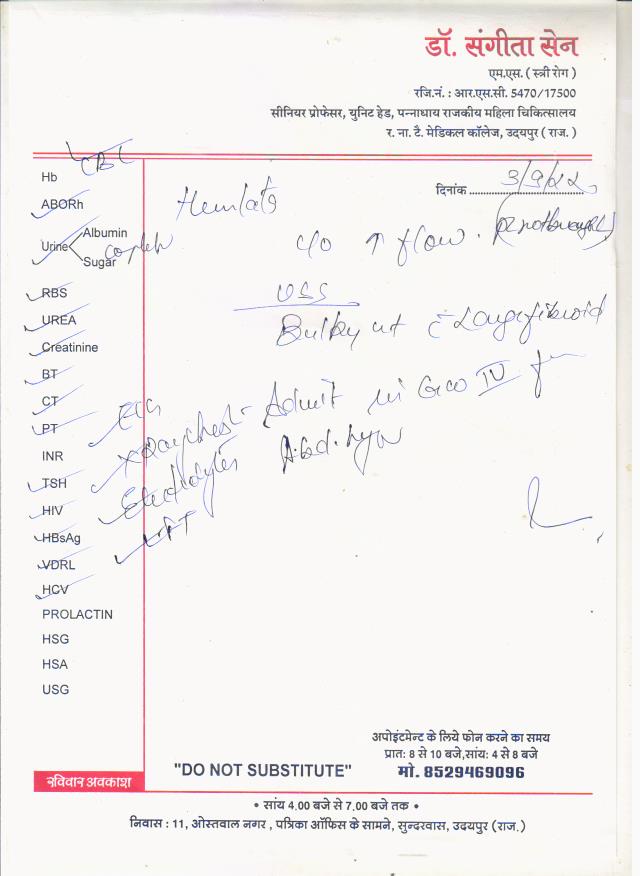 डॉ. संगीता सेन
एम.एस. ( स्त्री रोग )
रजि.नं. : आर.एस.सी. 5470/17500
सीनियर प्रोफेसर, यूनिट हेड, पन्नाधाय राजकीय महिला चिकित्सालय
र. ना. टै. मेडिकल कॉलेज, उदयपुर ( राज. )
CBC
Hb
दिनांक 3/9/22
ABORh
Hemlata
Urine Albumin
Sugar
complete
c/o ↑ flow.
RBS
USS
UREA
Bulky ut c̄ Large fibroid
Creatinine
BT
CT
ECG
Admit in Gw IV for
PT
X ray chest
INR
Abd. hys
TSH
Electrolytes
HIV
LFT
HBsAg
VDRL
HCV
PROLACTIN
HSG
HSA
USG
अपोइंटमेन्ट के लिये फोन करने का समय
प्रात: 8 से 10 बजे,सांय: 4 से 8 बजे
मो. 8529469096
"DO NOT SUBSTITUTE"
रविवार अवकाश
• सांय 4.00 बजे से 7.00 बजे तक •
निवास : 11, ओस्तवाल नगर , पत्रिका ऑफिस के सामने, सुन्दरवास, उदयपुर (राज.)